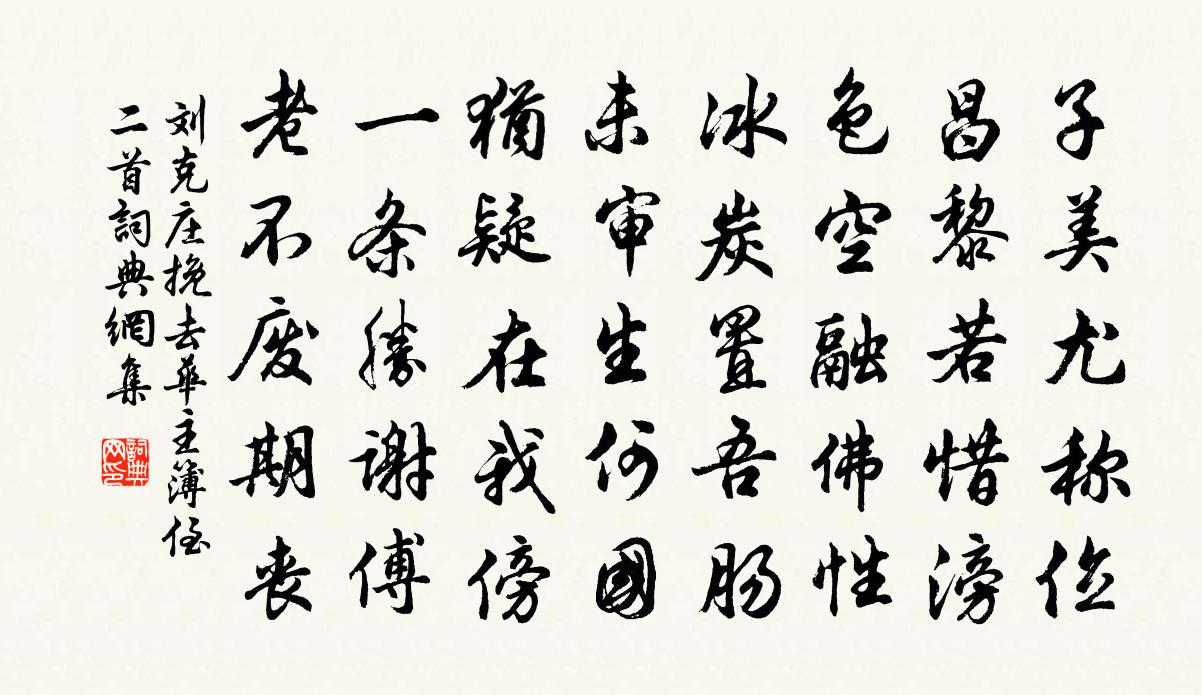 子美尤称位
昌黎若惜滂
色空融佛性
冰炭置吾肠
未审生何國
犹疑在我傍
一条勝谢傅
老不废期丧
刘克庄挽去華主簿侄
二首詞典網集
詞典网印